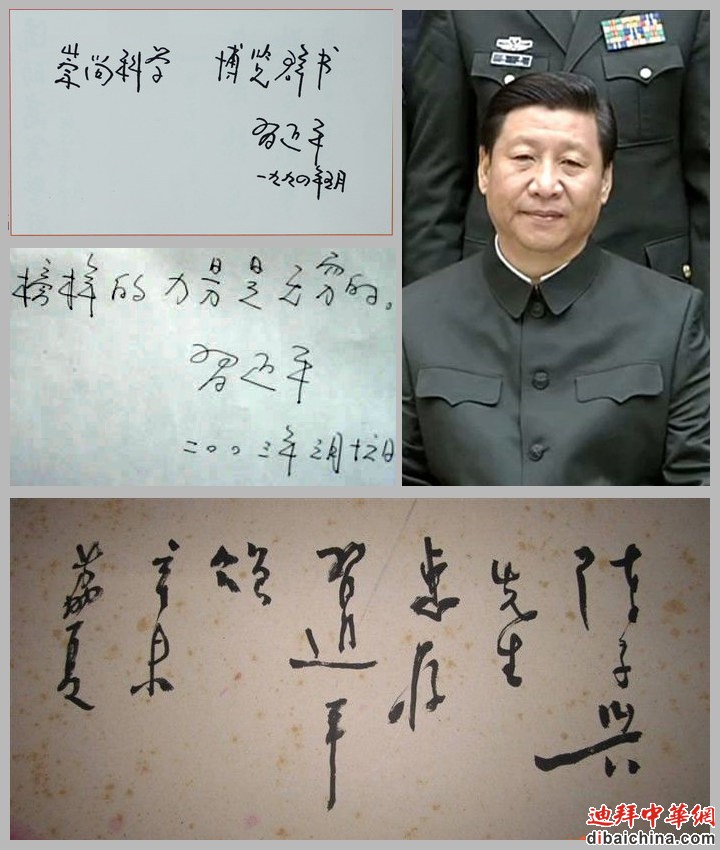 崇尚科学 博览群书
习近平
一九九 年五月
榜样的力量是无穷的。
习近平
二〇〇三年三月 日
陈子兴
先生
惠存
習近平
辛未
夏
迪拜中華網
dibaichina.com